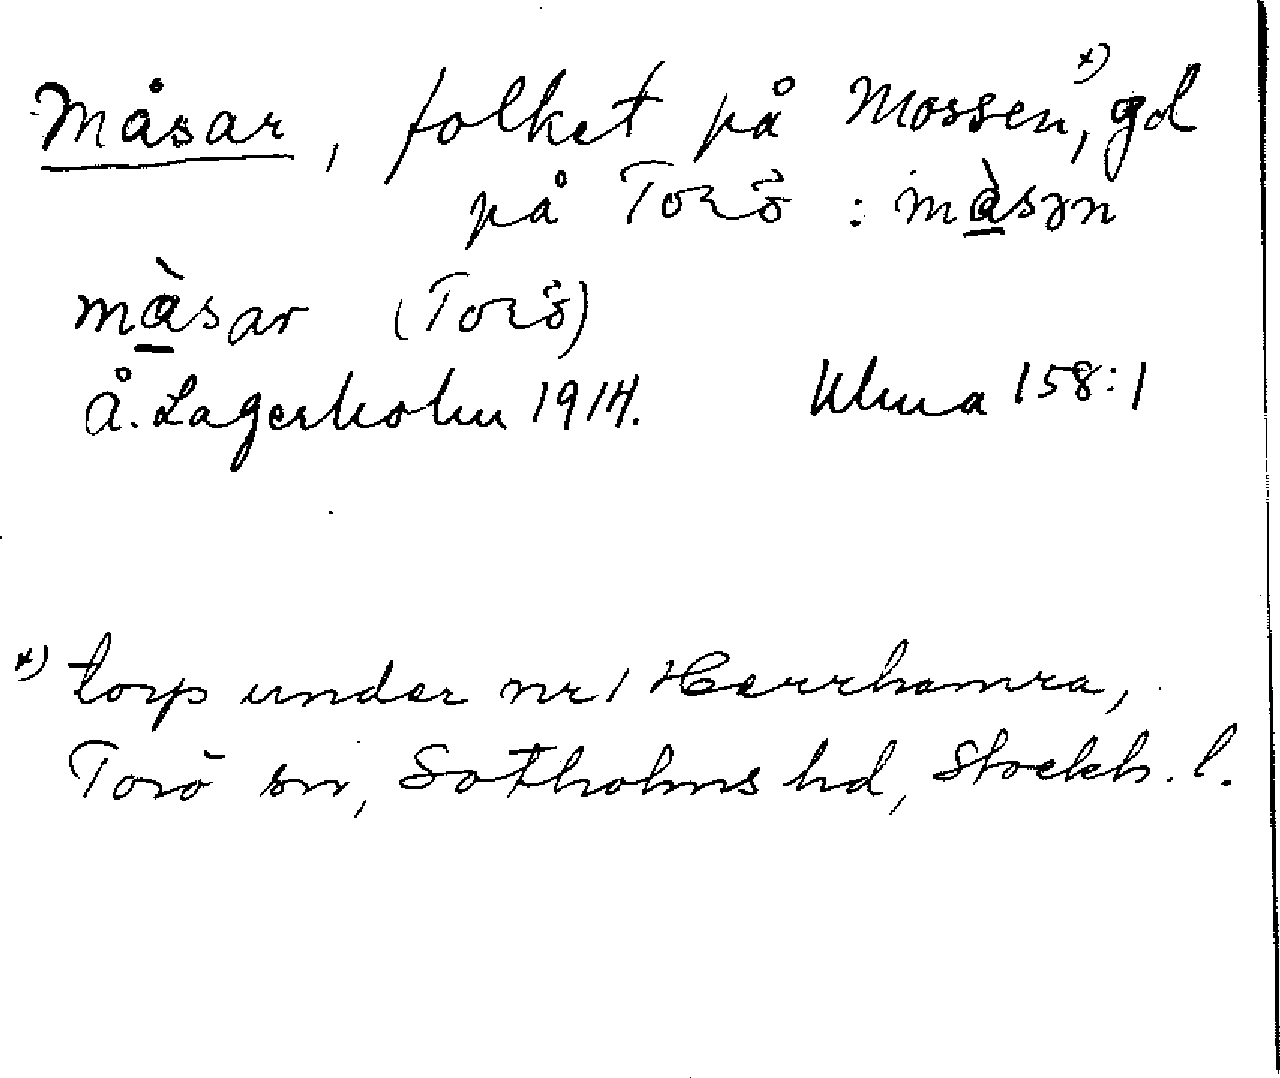 Måsar, folket på Mossen,ˣ⁾ gd
på Torö : mɑ̠̀sən
mɑ̠̀sar (Torö)
Å. Lagerholm 1914. Ulma 158:1
x) torp under nr 1 Herrhamra,
Torö sn, Sotholms hd, Stockh. l.